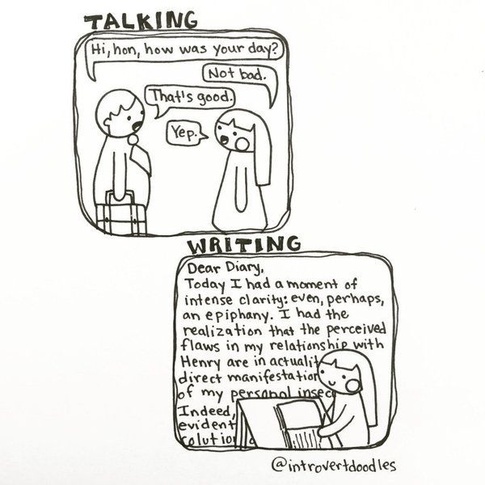 TALKING
Hi, hon, how was your day?
Not bad.
That's good.
Yep.
WRITING
Dear Diary,
Today I had a moment of
intense clarity: even, perhaps,
an epiphany. I had the
realization that the perceived
flaws in my relationship with
Henry are in actualit
direct manifestation
of my personal insec
Indeed,
evident
solution
@introvertdoodles